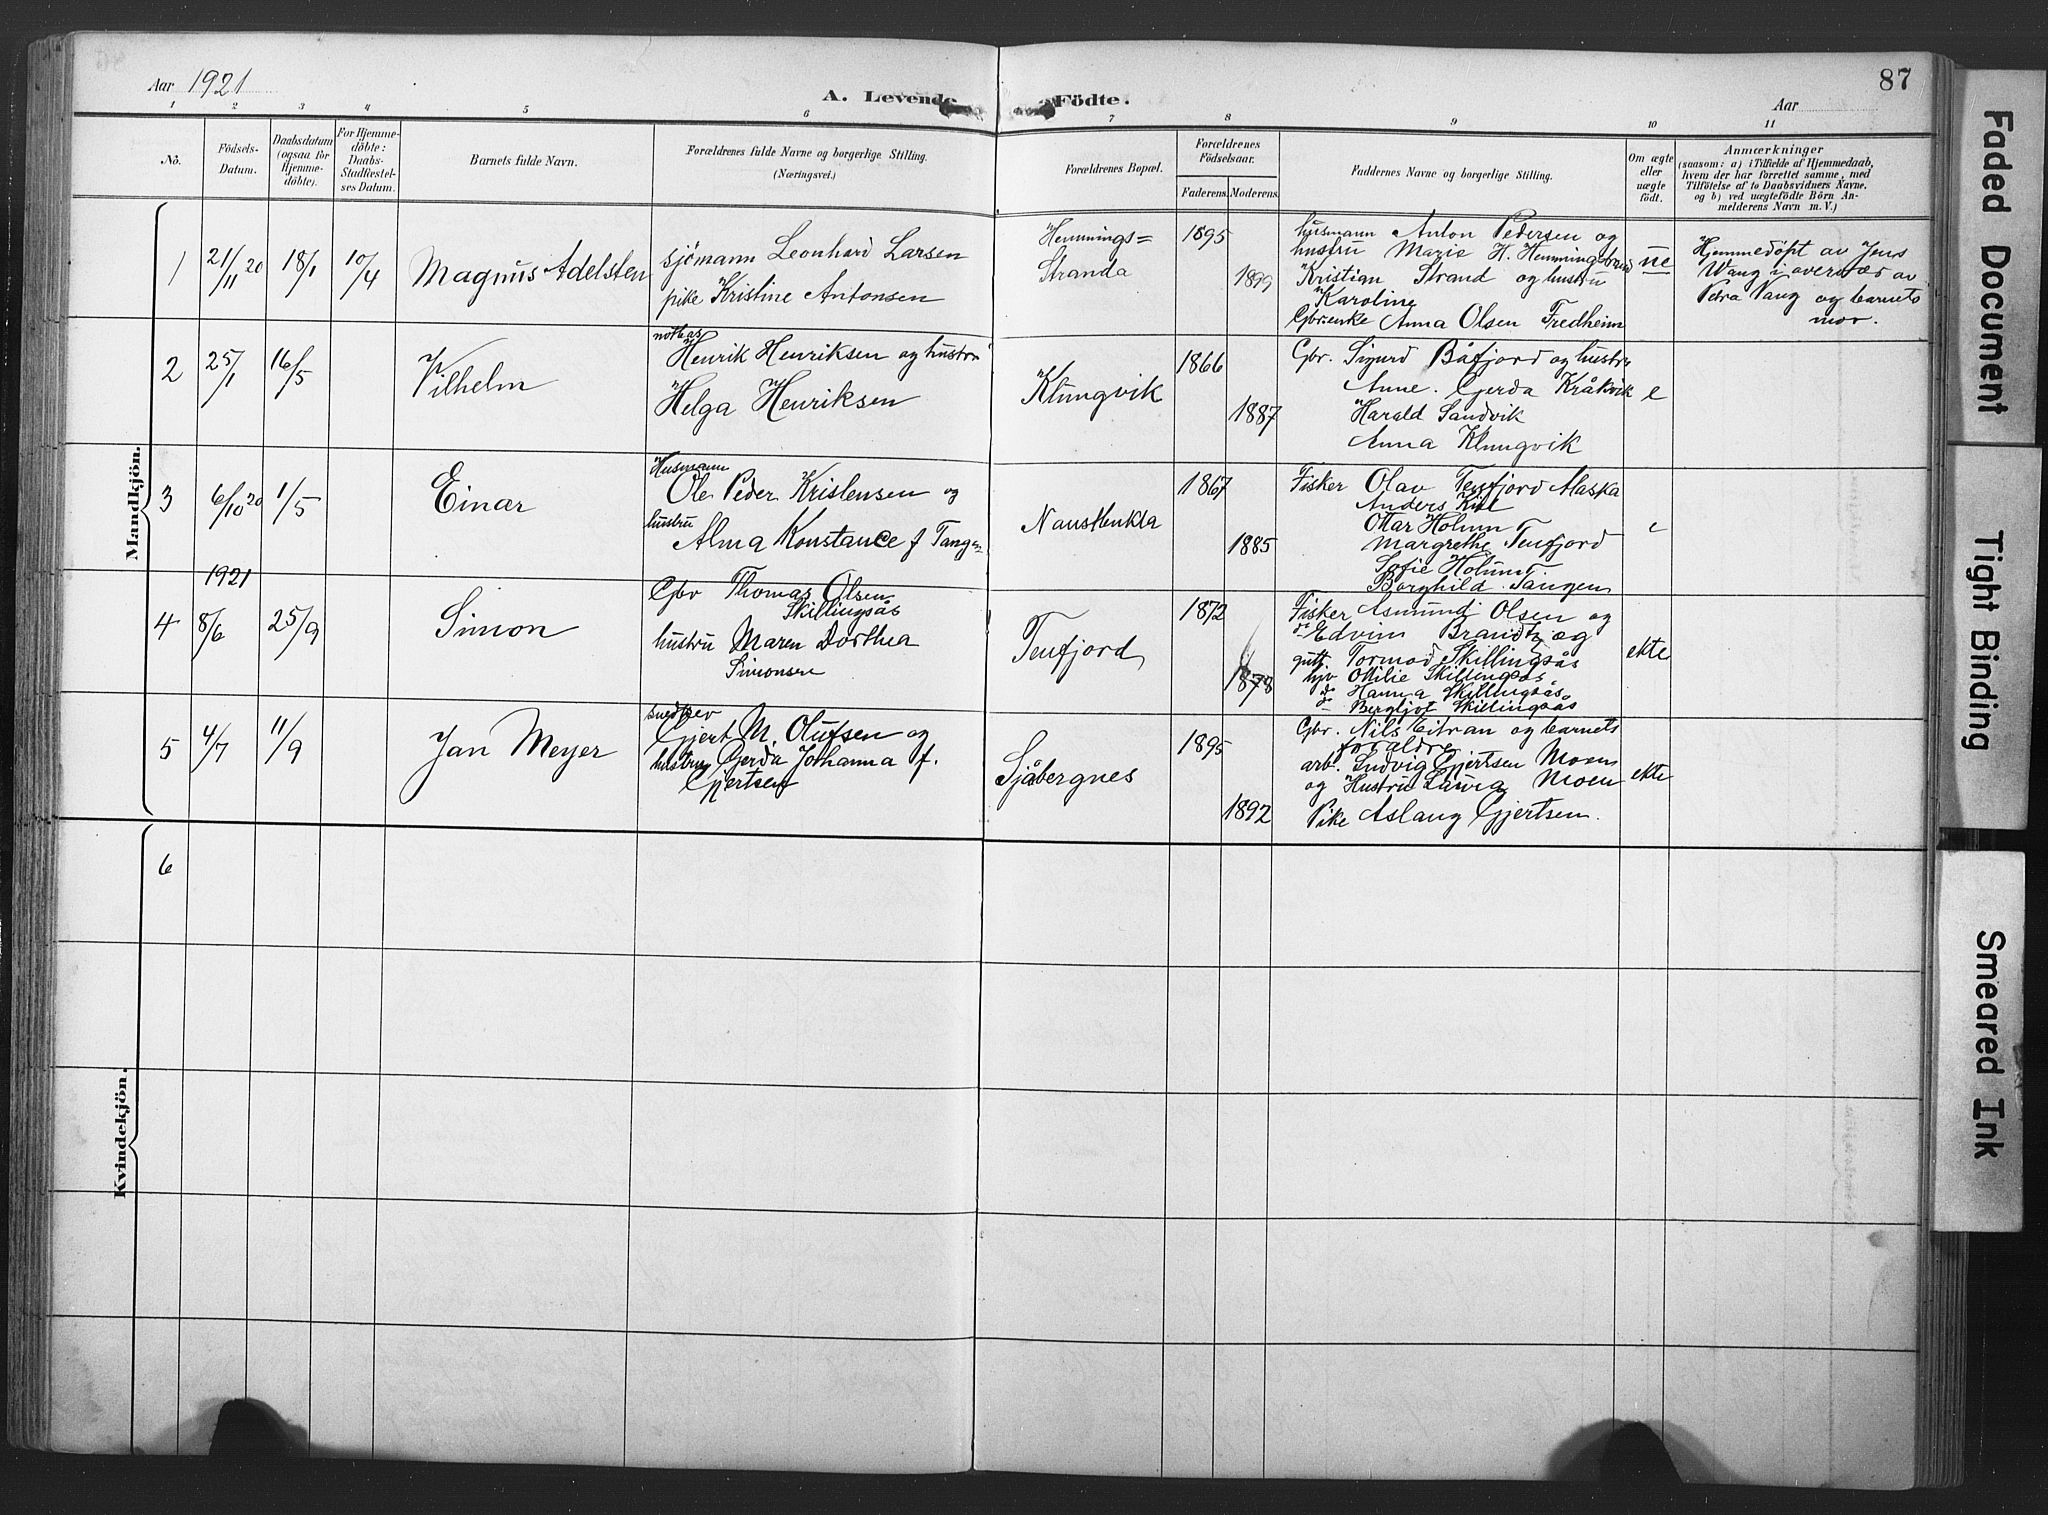 Aar 1921
A. Levende Födte.
87
Aar
1 2 3 4 5 6 7 8 9 10 11
No.
Födsels-
Datum.
Daabsdatum
(ogsaa for
Hjemme-
döbte).
For Hjemme-
döbte:
Daabs-
Stadfæstel-
ses Datum.
Barnets fulde Navn.
Forældrenes fulde Navne og borgerlige Stilling.
(Næringsvei.)
Forældrenes Bopæl.
Forældrenes
Födselsaar.
Faderens. Moderens.
Faddernes Navne og borgerlige Stilling.
Om ægte
eller
uægte
födt.
Anmærkninger
(saasom: a) i Tilfælde af Hjemmedaab,
hvem der har forrettet samme, med
Tilföielse af to Daabsvidners Navne.
og b) ved uægtefödte Börn An-
melderens Navn m. V.)
Mandkjön.
1
21/11 20
18/1
10/4
Magnus Adelsten
sjömann Leonhard Larsen
pike Kristine Antonsen
Hemnings=
Stranda
1895
1899
husmann Anton Pedersen og
hustru Marie H. Hemmingstrand
Kristian Strand og hustru
Karoline
Gbr.enke Anna Olsen Fredheim
ue
Hjemmedöpt av Jens
Wang i overvær av
Petra Vang og barnets
mor.
2
25/1
16/5
Vilhelm
Henrik Henriksen og hustru
Helga Henriksen
Klungvik
1866
1887
Gbr. Sigurd Båfjord og hustru
Anne. Gjerda Kråkvik
Harald Sandvik
Anna Klungvik
e
3
6/10 20
1/5
Einar
Husmann
Ole Peder Kristensen og
hustru
Alma Konstance f Tangen
Naustbukta
1867
1885
Fisker Olav Tenfjord Alaska
Anders Kiil
Ottar Holum
Margrethe Tenfjord
Sofie Holum
Borghild Tangen
e
1921
4
8/6
25/9
Simon
Gbr Thomas Olsen
Skillingsås
hustru Maren Dorthea
Simonsen
Tenfjord
1872
1878
Fisker Asmund Olsen og
do Edvin Brandtzæg
gutt. Tormod Skillingsås
hjv Otilie Skillingsås
do Hanna Skillingsås
do Bergljot Skillingsås
ekte
5
4/7
11/9
Jan Meyer
snedker
Gjert M. Olufsen og
hustru Gerda Johanna f.
Gjertsen
Sjåbergnes
1895
1892
Gbr. Nils Eitran og barnets
foraldre
arb. Ludvig Gjertsen Moen
og Hustru Laura Moen
Pike Aslaug Gjertsen.
ekte
Kvindekjön.
6
Faded Document
Tight Binding
Smeared Ink